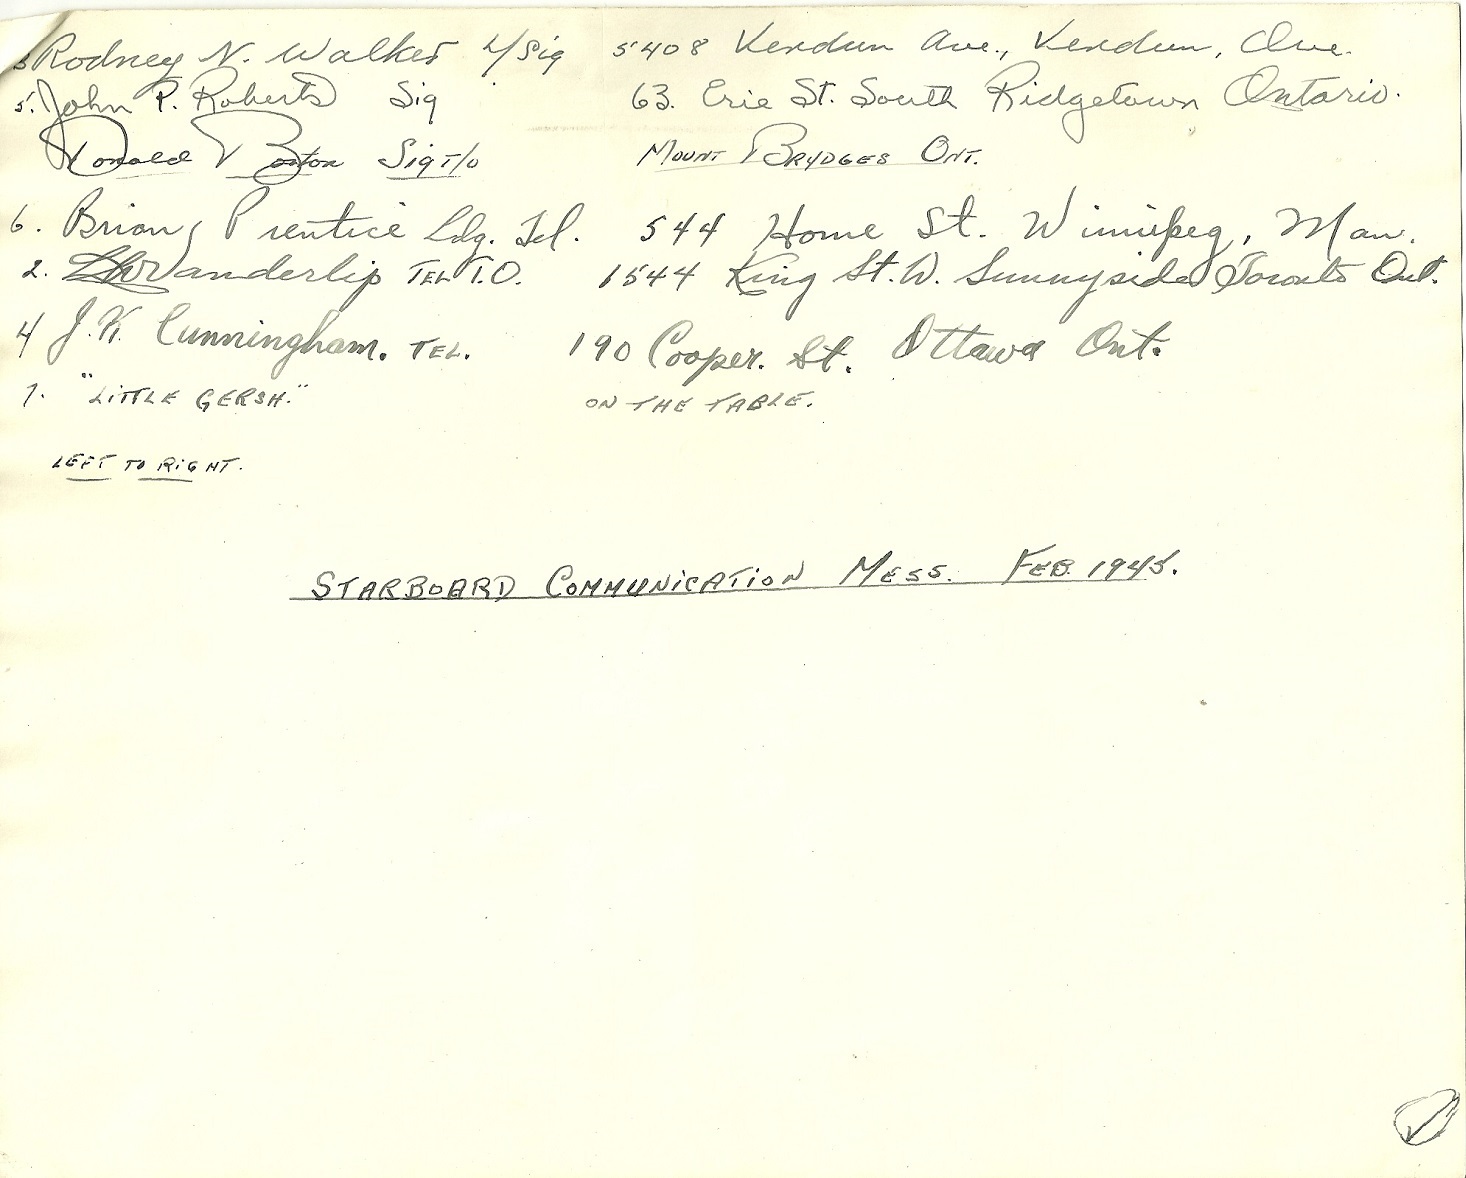 3 Rodney N. Walker L/Sig 5408 Verdun Ave., Verdun, Que.
5. John P. Roberts Sig 63. Erie St. South Ridgetown Ontario.
Donald Boston Sig T/O Mount Brydges Ont.
6. Brian Prentice Ldg. Tel. 544 Home St. Winnipeg, Man.
2. Vanderlip TEL T.O. 1544 King St. W. Sunnyside Toronto Ont.
4 J.K. Cunningham. TEL. 190 Cooper. St. Ottawa Ont.
7. "LITTLE GERSH." ON THE TABLE.
LEFT TO RIGHT.
STARBOARD COMMUNICATION MESS. FEB. 1945.